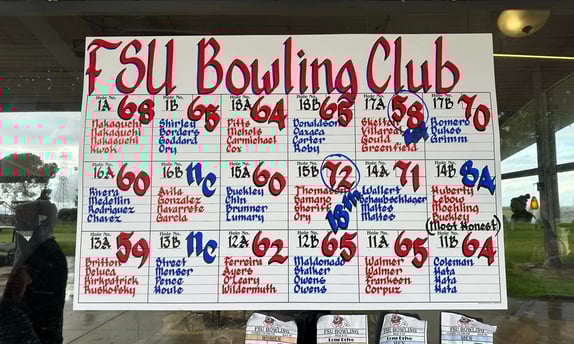 FSU Bowling Club
Hole No. 1A 68
Nakaguchi
Nakaguchi
Nakaguchi
Kwok
Hole No. 1B 65
Shirley
Borders
Goddard
Ory
Hole No. 18A 64
Pitts
Nichols
Carmichael
Cox
Hole No. 18B 65
Donaldson
Oaxaca
Carter
Roby
Hole No. 17A 58
Skelton
Villareal
Gould
Greenfield
Hole No. 17B 70
Romero
Dukes
Grimm
Hole No. 16A 60
Rivera
Medellin
Rodriquez
Chavez
Hole No. 16B NC
Avila
Gonzalez
Navarrete
Garcia
Hole No. 15A 60
Buckley
Chin
Brunner
Lumary
Hole No. 15B 72
Thomason
Samano
Shoritz
Ory
18th
Hole No. 14A 71
Wallert
Schaubschlager
Mattes
Mattes
Hole No. 14B 84
Huberty
Lebow
Moehling
Buckley
(Most Honest)
Hole No. 13A 59
Britton
DeLuca
Kirkpatrick
Ruskofsky
Hole No. 13B NC
Street
Menser
Pence
Houle
Hole No. 12A 62
Ferreira
Ayers
O'Leary
Wildermuth
Hole No. 12B 65
Maldonado
Stalker
Owens
Owens
Hole No. 11A 65
Walmer
Walmer
Franksen
Corpuz
Hole No. 11B 64
Coleman
Hata
Hata
Hata
FSU BOWLING
WOMEN
FSU BOWLING
Long Drive
FSU BOWLING
MEN
FSU BOWLING
MEN